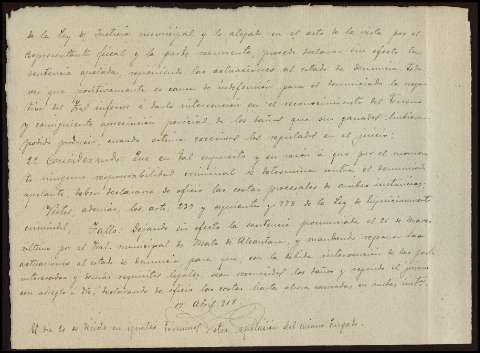 de la Ley de Justicia municipal y lo alegado en el acto de la vista por el
representante fiscal y la parte recurrente, procede declarar sin efecto la
sentencia apelada, reponiendo las actuaciones al estado de denuncia toda
vez que positivamente es causa de indefensión para el denunciado la nega
tiva del Tral inferior á darle intervención en el reconocimiento del terreno
y consiguiente apreciación pericial de los daños que sus ganados hubieran
podido producir, cuando estima excesivos los reputados en el juicio;
2º Considerando: Que en tal supuesto y en razón á que por el momen
to ninguna responsabilidad criminal se determina contra el denunciado
apelante, deben declararse de oficio las costas procesales de ambas instancias;
Vistos además, los arts. 239 y siguientes y 778 de la Ley de Enjuiciamiento
criminal, Fallo: Dejando sin efecto la sentencia pronunciada el 26 de Marzo
último por el Tral. municipal de Mata de Alcantara, y mandando reponer las
actuaciones al estado de denuncia para que, con la debida intervención de las partes
interesadas y demás requisitos legales, sean reconocidos los daños y seguido el juicio
con arreglo a dro, declarando de oficio las costas hasta ahora causadas en ambas insts.
17 Abril 918
El dia 20 se dictó en iguales términos otra apelación del mismo Juzgado.